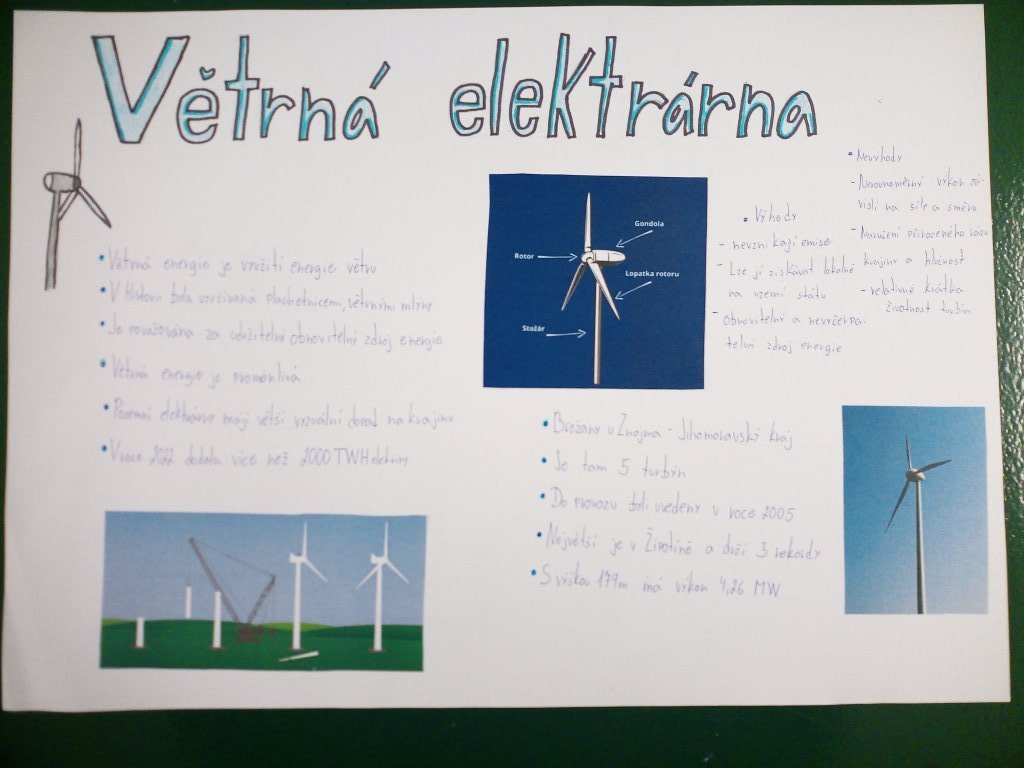 Větrná elektrárna
• Větrná energie je využití energie větru
• V Historii byla využívaná plachetnicemi, větrnými mlýny
• Je považována za udržitelný obnovitelný zdroj energie
• Větrná energie je proměnlivá
• Pozemní elektrárny mají větší vizuální dopad na krajinu
• V roce 2022 dodala více než 2000 TWH elektřiny
Gondola
Rotor
Lopatka rotoru
Stožár
• Výhody
- nevznikají emise
- Lze ji získávat lokálně
na území státu
- obnovitelný a nevyčerpa-
telný zdroj energie
• Nevýhody
- Nerovnoměrný výkon zá-
vislí na síle a směru
- Narušení přirozeného rázu
krajiny a hlučnost
- relativně krátká
životnost turbín
• Břežany u Znojma - Jihomoravský kraj
• Je tam 5 turbín
• Do provozu byli uvedeny v roce 2005
• Největší je v Žipotíně a drží 3 rekordy
• S výškou 179m má výkon 4,26 MW